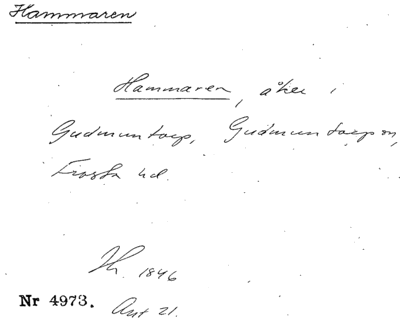 Hammaren
Hammaren, åker i
Gudmuntorp, Gudmuntorp sn,
Frosta hd.
1846
Nr 4973. Ant 21.